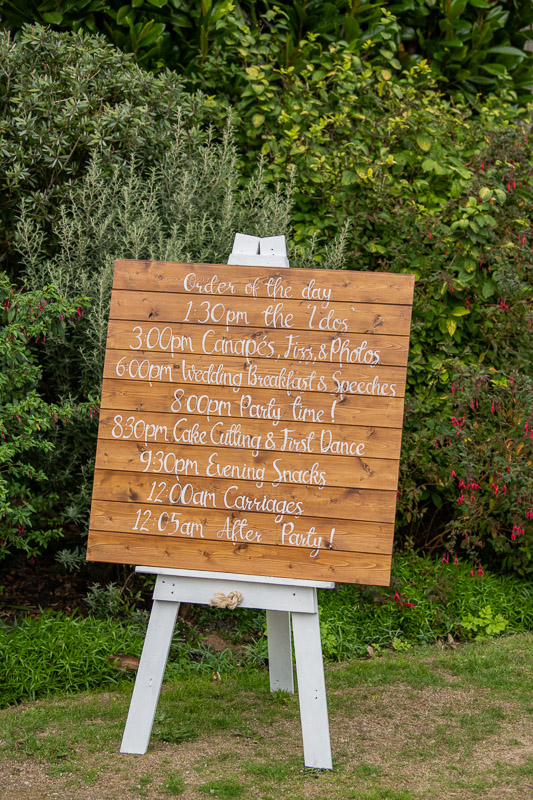 Order of the day
1:30pm the 'I dos'
3:00pm Canapés, Fizz, & Photos
6:00pm Wedding Breakfast & Speeches
8:00pm Party time!
8:30pm Cake Cutting & First Dance
9:30pm Evening Snacks
12:00am Carriages
12:05am After Party!